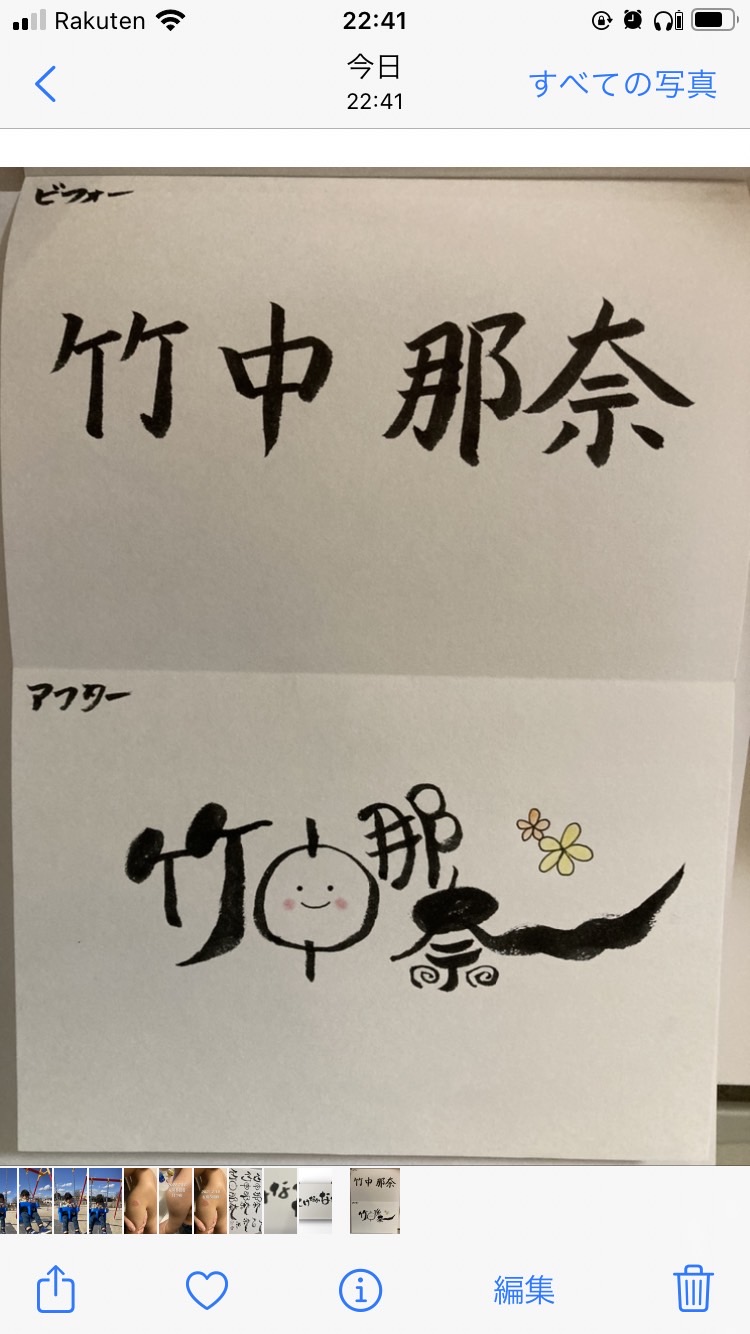 Rakuten 22:41
今日
22:41
すべての写真
ビフォー
竹中 那奈
アフター
竹中那奈
編集